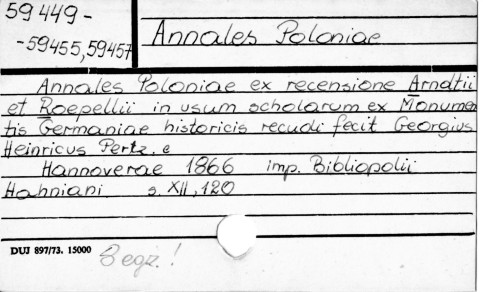 59 449 -
- 59455, 59457
Annales Poloniae
Annales Poloniae ex recensione Arndtii
et Roepellii in usum scholarum ex Monumen
tis Germaniae historicis recudi fecit Georgius
Heinricus Pertz.
Hannoverae 1866 imp. Bibliopolii
Hahniani s. XII, 120
DUJ 897/73. 15000
8 egz.!